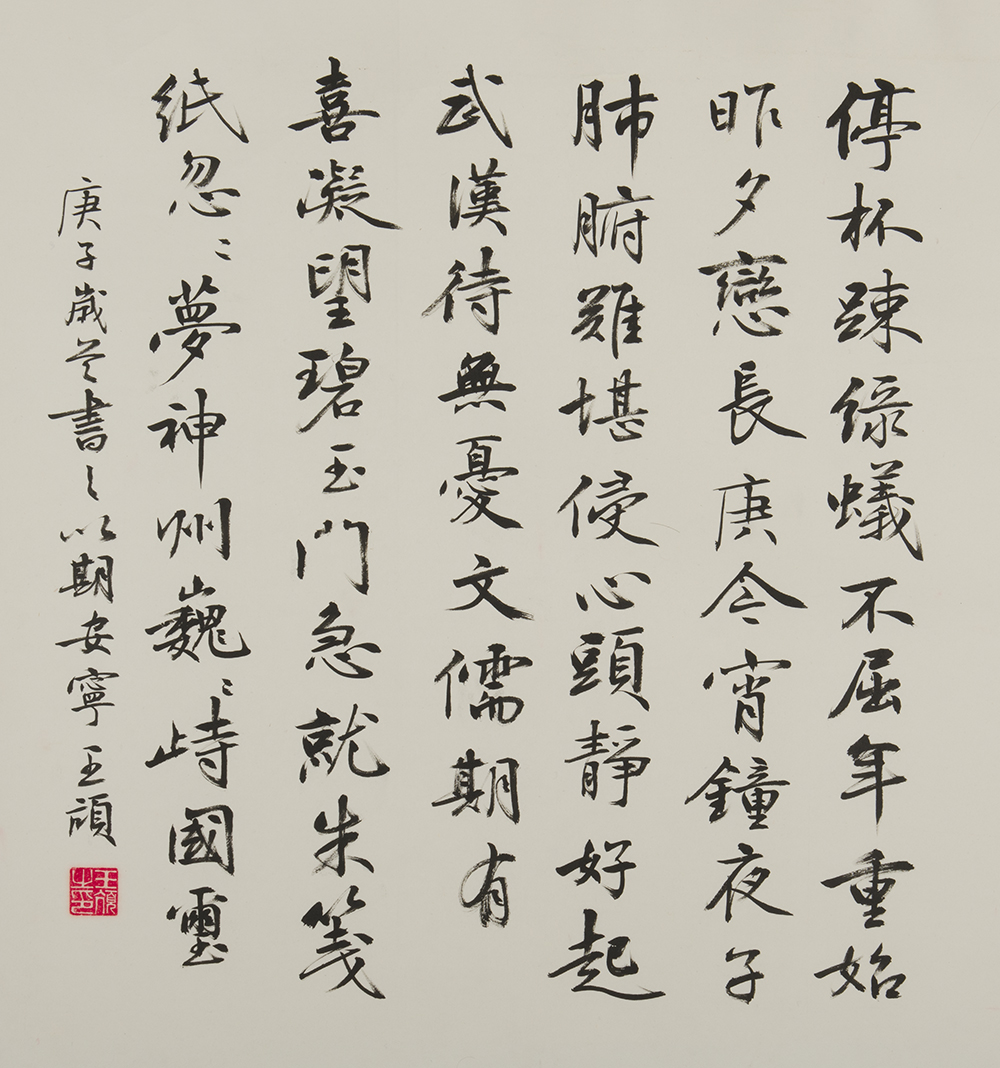 停杯踈綠蟻不屈年重始
昨夕戀長庚今宵鐘夜子
肺腑難堪侵心頭靜好起
武漢待無憂文儒期有
喜凝望碧玉門急就朱箋
紙忽〻夢神州巍〻峙國璽
庚子歲芒書之以期安寧王頎